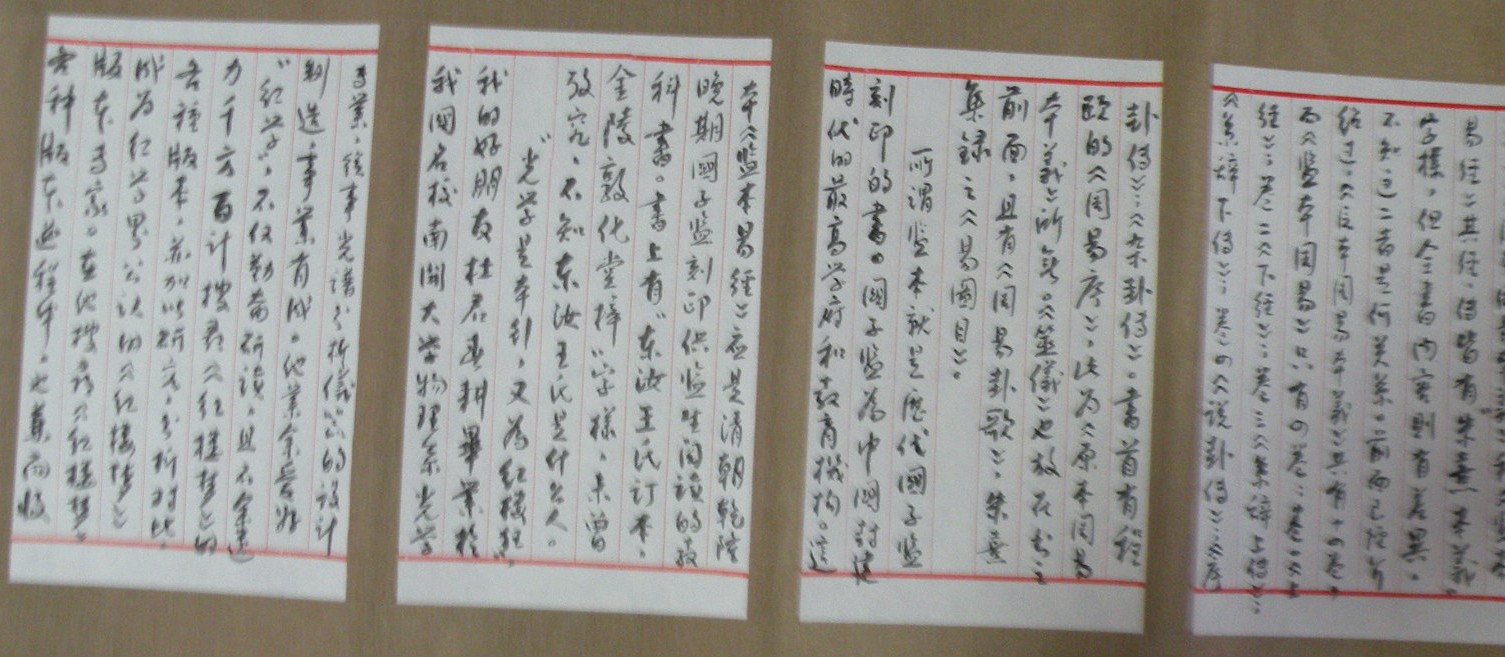 易经》其经、传皆有“朱熹本义”
字样。但全书内容则有差异。
不知这二者是何关系。前面已经介
绍过,《后本周易本义》共有十四卷。
而《监本周易》只有四卷:卷一《上
经》;卷二《下经》;卷三《系辞上传》、
《系辞下传》;卷四《说卦传》、《序
卦传》、《杂卦传》。书首有程
颐的《周易序》,此为《原本周易
本义》所无。《筮仪》也放在书之
前面,且有《周易卦歌》、朱熹
集录之《易图目》。
所谓监本就是历代國子监
刻印的書。國子监為中國封建
時代的最高学府和教育機构。這
本《监本易经》应是清朝乾隆
晚期國子监刻印供监生阅读的教
科書。書上有“东汝王氏订本,
金陵敦化堂梓”字樣,未曾
考究,不知东汝王氏是什么人。
“光学是本行,又為红樓狂”,
我的好朋友杜君春耕畢業於
我國名校南開大学物理系光学
專業,從事光谱分析儀器的设计
制造,事業有成。他業余爱好
“红学”,不仅勤奋研读,且不余遗
力千方百计搜尋《红樓梦》的
各種版本,并加以研究、分析对比,
成為红学界公认的《红樓梦》
版本專家。在他搜尋《红樓梦》
各种版本过程中,也兼而收